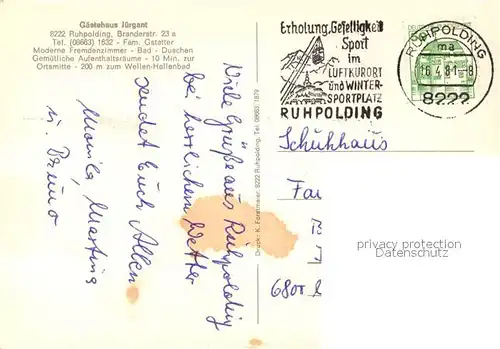 Gästehaus Jürgant
8222 Ruhpolding, Branderstr. 23 a
Tel. (08663) 1632 - Fam. Gstatter
Moderne Fremdenzimmer - Bad - Duschen
Gemütliche Aufenthaltsräume - 10 Min. zur
Ortsmitte - 200 m zum Wellen-Hallenbad
Viele Grüße aus Ruhpolding
bei herrlichem Wetter
sendet Euch Allen
Monika, Martina
u. Bruno
Druck: K. Forstmeier, 8222 Ruhpolding, Tel. 08663/1879
Erholung, Geselligkeit
Sport
im
LUFTKURORT
und WINTER-
SPORTPLATZ
RUHPOLDING
RUHPOLDING
ma
16.4.81-8
8222
Schuhhaus
Fa
6800
privacy protection
Datenschutz